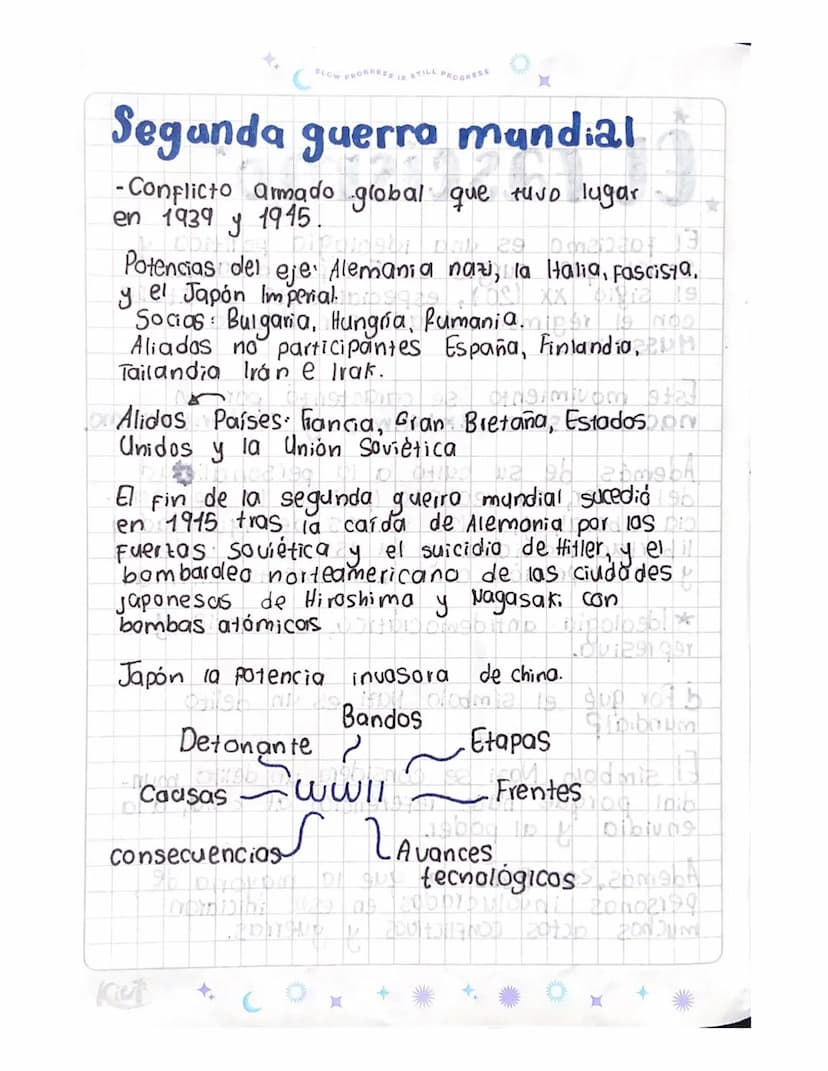 SLOW PROGRESS IS STILL PROGRESS
Segunda guerra mundial
-Conflicto armado global que tuvo lugar
en 1939 y 1945.
Potencias del eje: Alemania nazi, la Italia, fascista,
y el Japón Imperial.
Socias: Bulgaria, Hungría, Rumania.
Aliados no participantes España, Finlandia,
Tailandia Irán e Irak.
Alidos Países: Francia, Gran Bretaña, Estados
Unidos y la Unión Soviética
El fin de la segunda guerra mundial sucedió
en 1945 tras la caída de Alemania por las
fuertas soviética y el suicidio de Hitler, y el
bombardeo norteamericano de las ciudades
japonesas de Hiroshima y Nagasaki con
bombas atómicas
Japón la potencia invasora de china.
Bandos
Detonante
Etapas
Causas
WWII
Frentes
consecuencias
Avances
tecnológicos
Kiut